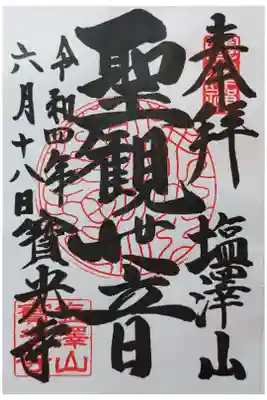 奉拝 塩澤山
聖観世音
令和四年 寶光寺
六月十八日